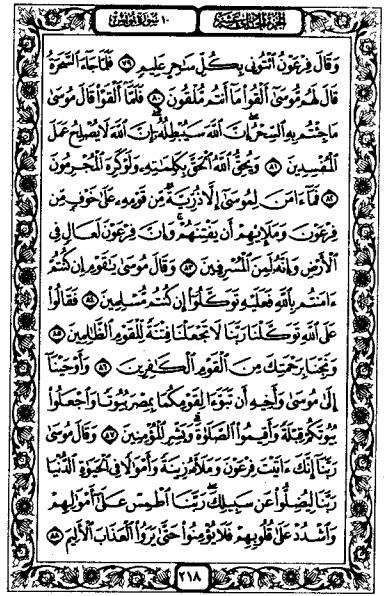 الجزء الحادي عشر
١٠ سورة يونس
وَقَالَ فِرْعَوْنُ ٱئْتُونِى بِكُلِّ سَٰحِرٍ عَلِيمٍ ٧٩ فَلَمَّا جَآءَ ٱلسَّحَرَةُ
قَالَ لَهُم مُّوسَىٰٓ أَلْقُوا۟ مَآ أَنتُم مُّلْقُونَ ٨٠ فَلَمَّآ أَلْقَوْا۟ قَالَ مُوسَىٰ
مَا جِئْتُم بِهِ ٱلسِّحْرُ إِنَّ ٱللَّهَ سَيُبْطِلُهُۥٓ إِنَّ ٱللَّهَ لَا يُصْلِحُ عَمَلَ
ٱلْمُفْسِدِينَ ٨١ وَيُحِقُّ ٱللَّهُ ٱلْحَقَّ بِكَلِمَٰتِهِۦ وَلَوْ كَرِهَ ٱلْمُجْرِمُونَ
٨٢ فَمَآ ءَامَنَ لِمُوسَىٰٓ إِلَّا ذُرِّيَّةٌ مِّن قَوْمِهِۦ عَلَىٰ خَوْفٍ مِّن
فِرْعَوْنَ وَمَلَإِي۟هِمْ أَن يَفْتِنَهُمْ وَإِنَّ فِرْعَوْنَ لَعَالٍ فِى
ٱلْأَرْضِ وَإِنَّهُۥ لَمِنَ ٱلْمُسْرِفِينَ ٨٣ وَقَالَ مُوسَىٰ يَٰقَوْمِ إِن كُنتُمْ
ءَامَنتُم بِٱللَّهِ فَعَلَيْهِ تَوَكَّلُوٓا۟ إِن كُنتُم مُّسْلِمِينَ ٨٤ فَقَالُوا۟
عَلَى ٱللَّهِ تَوَكَّلْنَا رَبَّنَا لَا تَجْعَلْنَا فِتْنَةً لِّلْقَوْمِ ٱلظَّٰلِمِينَ ٨٥
وَنَجِّنَا بِرَحْمَتِكَ مِنَ ٱلْقَوْمِ ٱلْكَٰفِرِينَ ٨٦ وَأَوْحَيْنَآ
إِلَىٰ مُوسَىٰ وَأَخِيهِ أَن تَبَوَّءَا لِقَوْمِكُمَا بِمِصْرَ بُيُوتًا وَٱجْعَلُوا۟
بُيُوتَكُمْ قِبْلَةً وَأَقِيمُوا۟ ٱلصَّلَوٰةَ وَبَشِّرِ ٱلْمُؤْمِنِينَ ٨٧ وَقَالَ مُوسَىٰ
رَبَّنَآ إِنَّكَ ءَاتَيْتَ فِرْعَوْنَ وَمَلَأَهُۥ زِينَةً وَأَمْوَٰلًا فِى ٱلْحَيَوٰةِ ٱلدُّنْيَا
رَبَّنَا لِيُضِلُّوا۟ عَن سَبِيلِكَ رَبَّنَا ٱطْمِسْ عَلَىٰٓ أَمْوَٰلِهِمْ
وَٱشْدُدْ عَلَىٰ قُلُوبِهِمْ فَلَا يُؤْمِنُوا۟ حَتَّىٰ يَرَوُا۟ ٱلْعَذَابَ ٱلْأَلِيمَ ٨٨
٢١٨